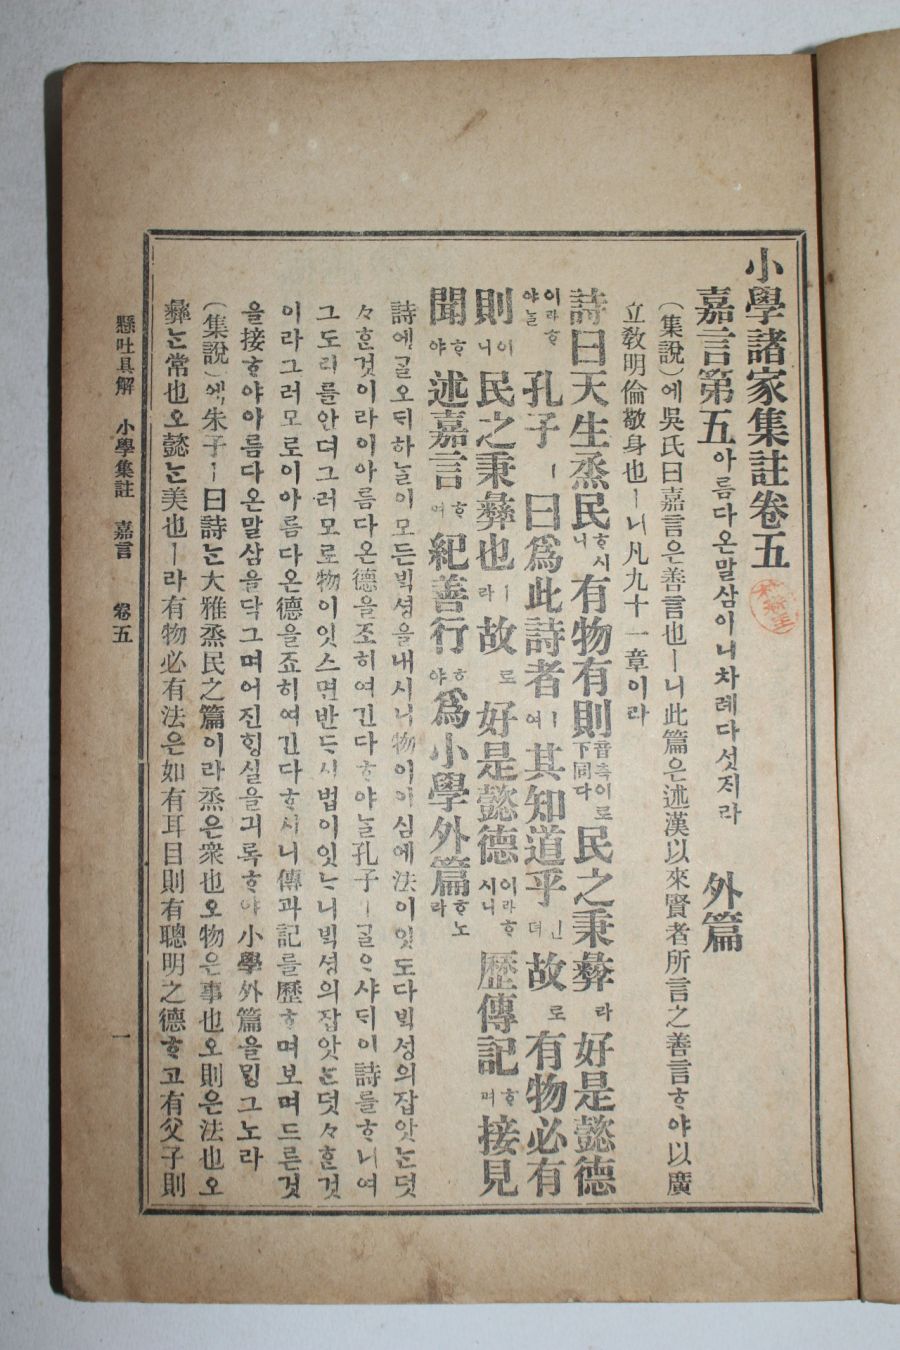 小學諸家集註卷五
嘉言第五 아름다온말삼이니차례다섯저라 外篇
(集說)에吳氏曰嘉言은善言也ㅣ니此篇은述漢以來賢者所言之善言ᄒᆞ야以廣
立敎明倫敬身也ㅣ니凡九十一章이라
詩曰天生烝民ᄒᆞ시니有物有則音측이로下同다民之秉彝라好是懿德
이라ᄒᆞ야ᄂᆞᆯ孔子ㅣ曰爲此詩者ㅣ여其知道乎ㅣᆫ뎌故로有物必有
則이니民之秉彝也ㅣ라故로好是懿德이라ᄒᆞ시니歷傳記ᄒᆞ며接見
聞ᄒᆞ야述嘉言ᄒᆞ며紀善行ᄒᆞ야爲小學外篇ᄒᆞ노라
詩에ᄀᆞᆯ오ᄃᆡ하ᄂᆞᆯ이모든ᄇᆡᆨ셩을내시니物이이심에法이잇도다ᄇᆡᆨ성의잡앗ᄂᆞᆫ덧
々ᄒᆞᆫ것이라이아름다온德을조히여긴다ᄒᆞ야ᄂᆞᆯ孔子ㅣᄀᆞᆯᄋᆞ샤ᄃᆡ이詩를ᄒᆞ니여
그도리를안뎌그러모로物이잇스면반ᄃᆞ시법이잇ᄂᆞ니ᄇᆡᆨ셩의잡앗ᄂᆞᆫ덧々ᄒᆞᆫ것
이라그러모로이아름다온德을죠히여긴다ᄒᆞ시니傳과記를歷ᄒᆞ며보며드른것
을接ᄒᆞ야아름다온말삼을닥그며어진ᄒᆡᆼ실을긔록ᄒᆞ야小學外篇을ᄆᆡᆼ그노라
(集說)에朱子ㅣ曰詩ᄂᆞᆫ大雅烝民之篇이라烝은衆也오物은事也오則은法也오
彝ᄂᆞᆫ常也오懿ᄂᆞᆫ美也ㅣ라有物必有法은如有耳目則有聰明之德ᄒᆞ고有父子則
懸吐具解 小學集註 嘉言 卷五 一